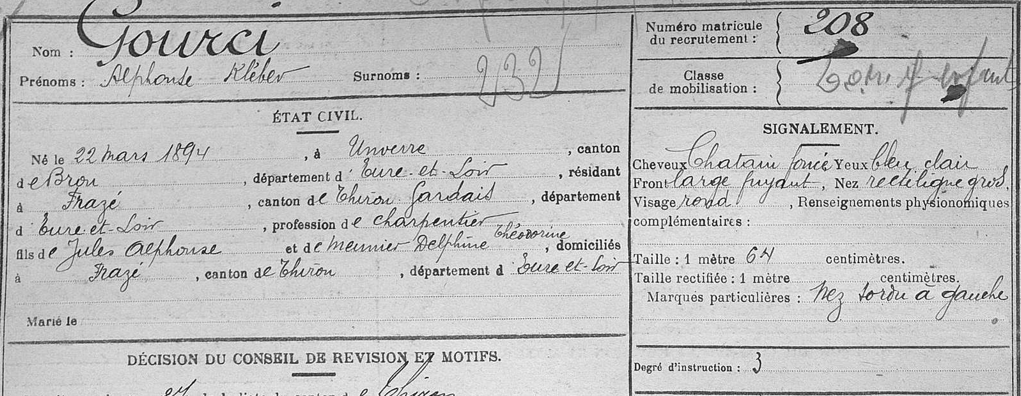 Nom : Gourci
Prénoms : Alphonse Kléber Surnoms :
232
ÉTAT CIVIL.
Né le 22 mars 1894, à Unverre, canton
de Brou, département d'Eure-et-Loir, résidant
à Frazé, canton de Thiron Gardais, département
d'Eure-et-Loir, profession de charpentier
fils de Jules Alphonse et de Meunier Delphine Théodorine, domiciliés
à Frazé, canton de Thiron, département d Eure-et-Loir
Marié le
DÉCISION DU CONSEIL DE REVISION ET MOTIFS.
de la liste du canton de Thiron
Numéro matricule
du recrutement : 208
Classe
de mobilisation :
SIGNALEMENT.
Cheveux Chatain foncé Yeux bleu clair
Front large fuyant, Nez rectiligne gros
Visage rond, Renseignements physionomiques
complémentaires :
Taille : 1 mètre 64 centimètres.
Taille rectifiée : 1 mètre centimètres.
Marques particulières : Nez tordu à gauche
Degré d'instruction : 3